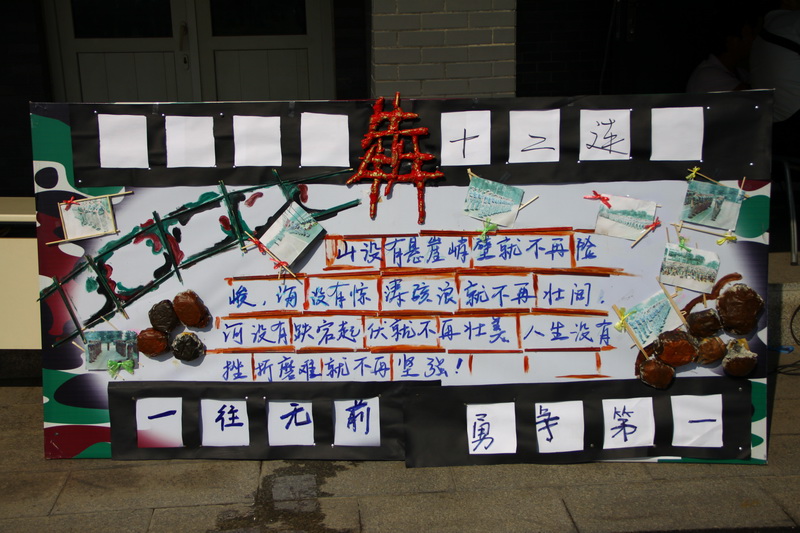 犇 十二连
山没有悬崖峭壁就不再险
峻，海没有惊涛骇浪就不再壮阔，
河没有跌宕起伏就不再壮美 人生没有
挫折磨难就不再坚强！
一往无前 勇争第一